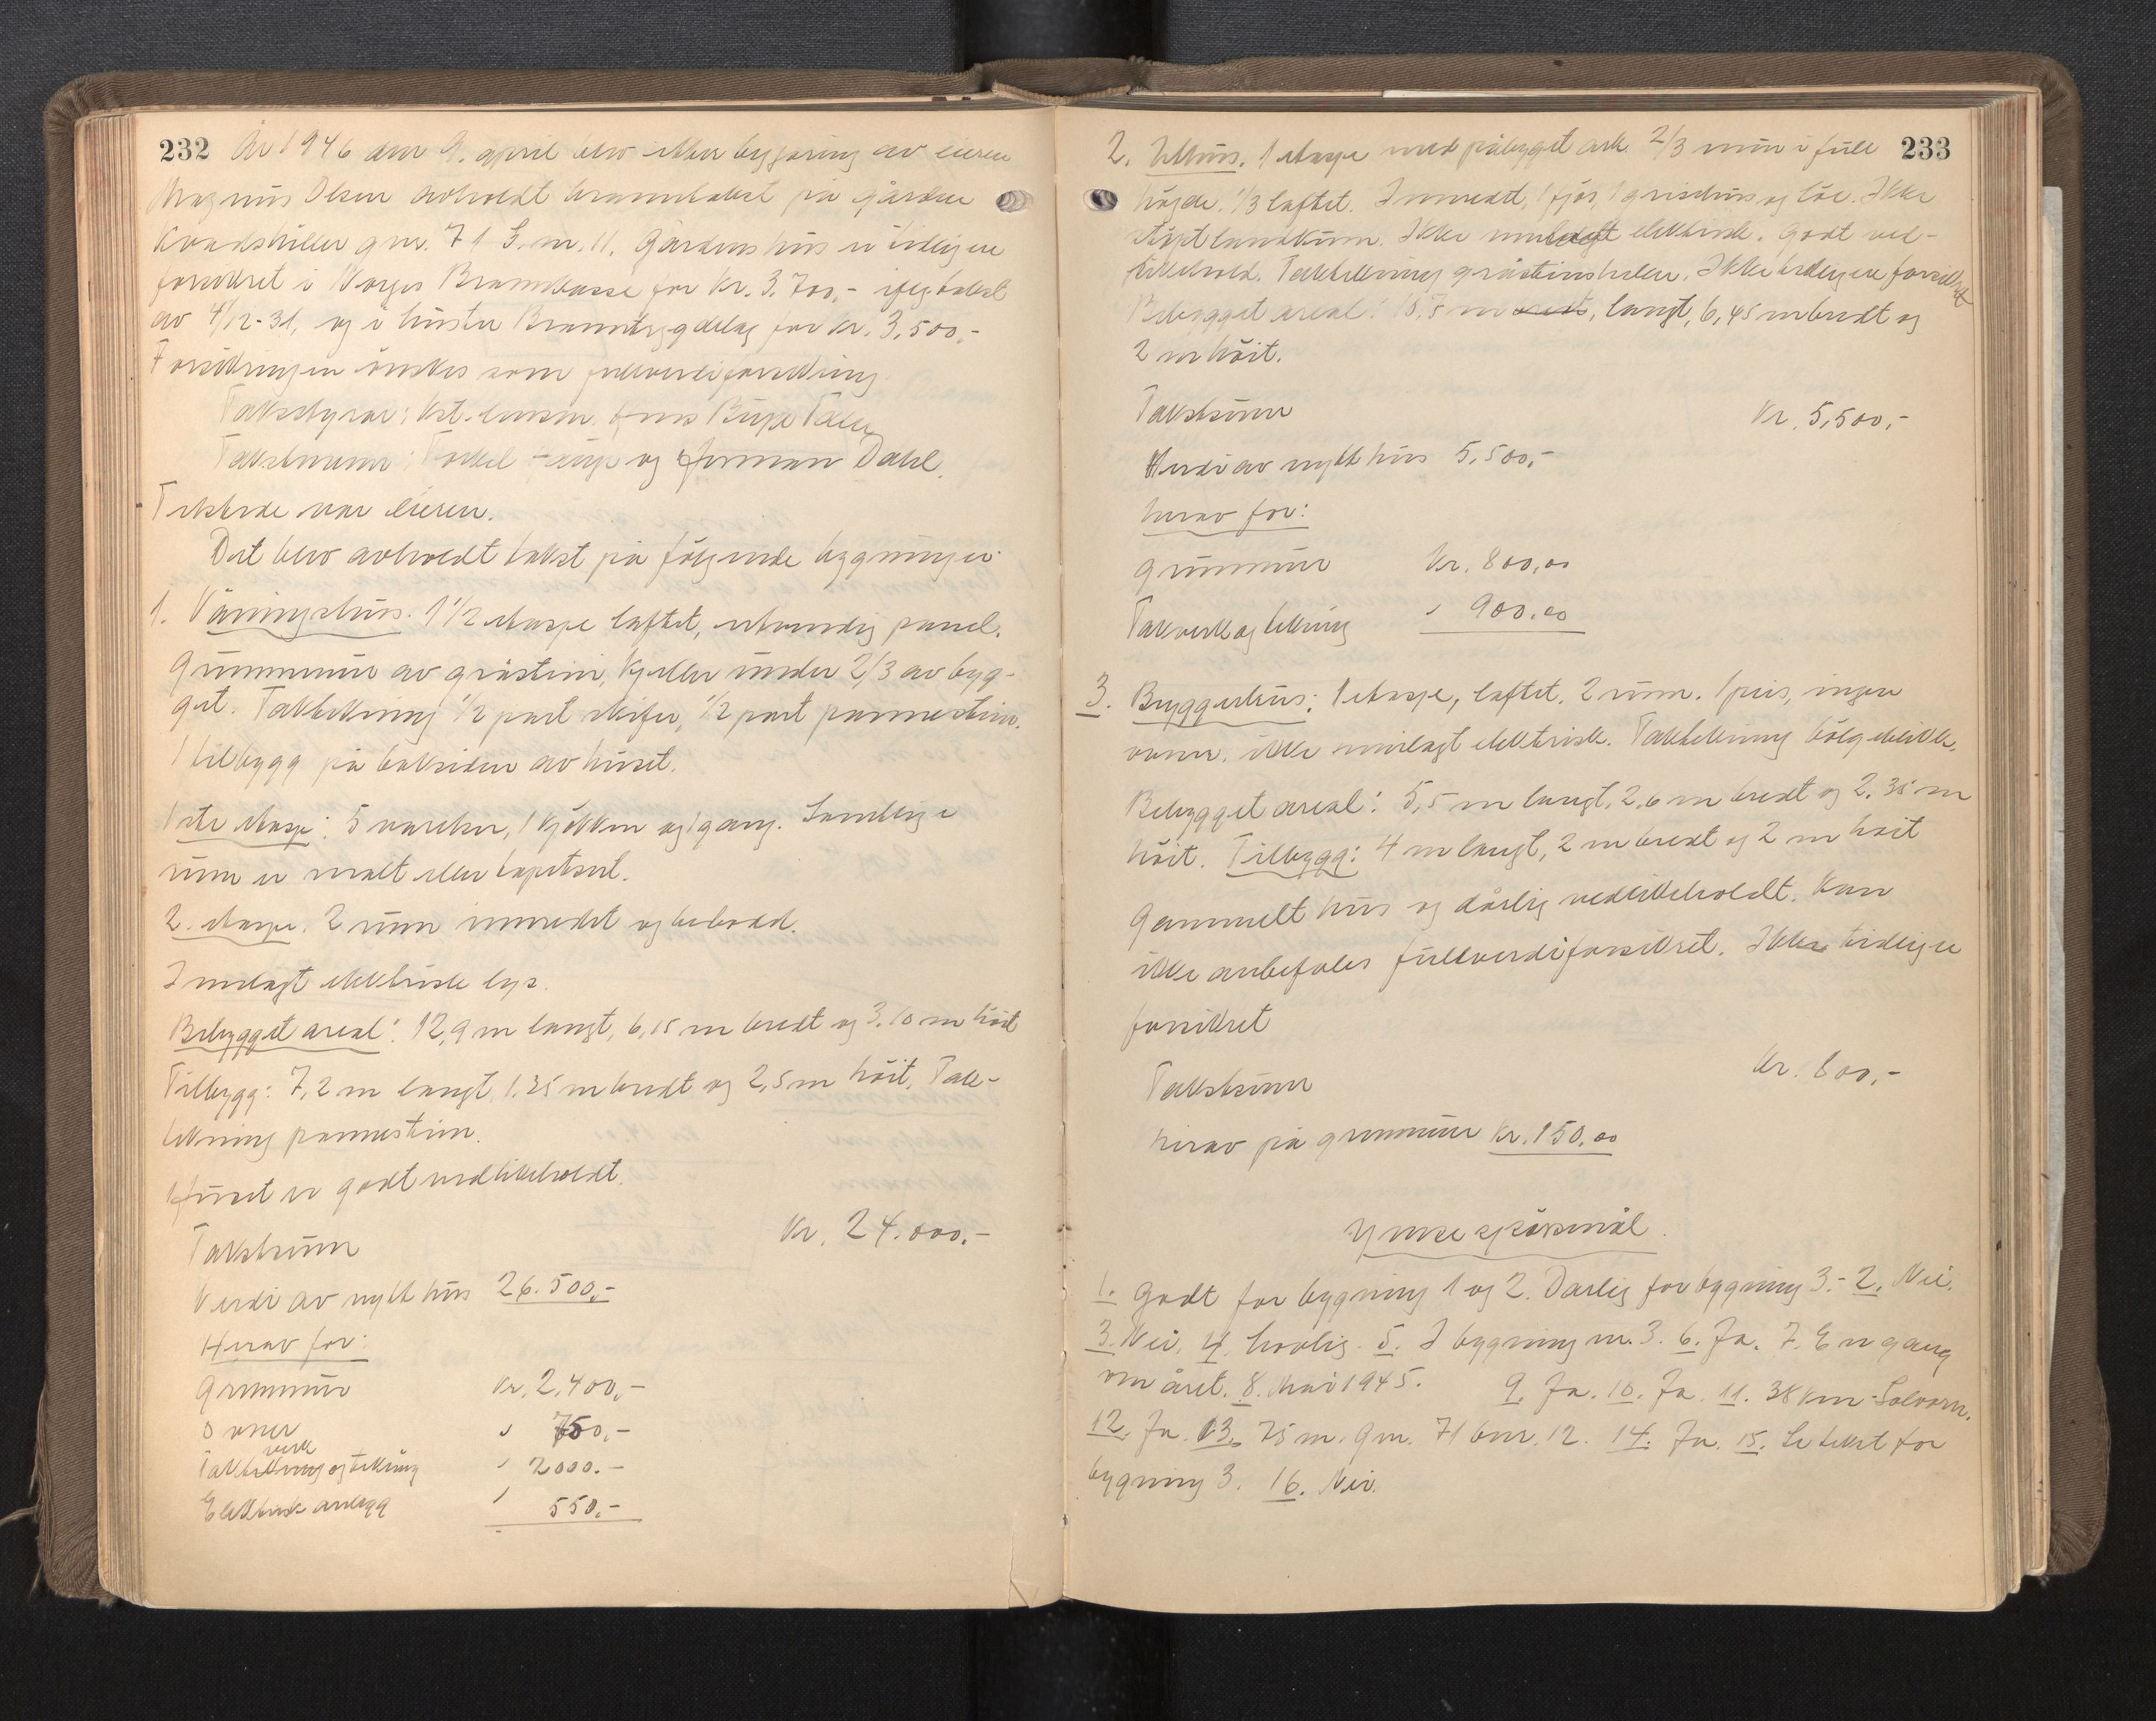 232
År 1946 den 9. april blev etter begjæring av eieren
Magnus Olsen avholdt branntakst på gården
gnr. 71 b.nr. 11. Gårdens hus er tidligere
forsikret i Norges Brannkasse for kr. 3.700,- ifølge takst
av 4/12-31, og i Luster Branntrygdelag for kr. 3,500,-
Forsikringen ønskes som fullverdiforsikring.
Takstyrar: lensm.
Takstmenn: og Herman Dahl.
Tilstede var eieren.
Det blev avholdt takst på følgende bygninger:
1. Våningshus. 1 1/2 etasje laftet, utvendig panel.
Grunnmur av gråstein, kjeller under 2/3 av byg-
get. Taktekning 1/2 part skifer, 1/2 part pannestein.
1 tilbygg på baksiden av huset.
1ste etasje: 5 værelser, 1 kjøkken og 1 gang. Samtlige
rum er malt eller tapetsert.
2. etasje. 2 rum innredet og bebodd.
Innlagt elektrisk lys.
Bebygget areal: 12,9 m langt, 6,15 m bredt og 3.10 m høit
Tilbygg: 7,2 m langt, 1.35 m bredt og 2,5 m høit. Tak-
tekning pannestein.
Huset er godt vedlikeholdt.
Takstsum Kr. 24.000.-
Verdi av nytt hus 26.500,-
Herav for:
Grunnmur Kr. 2,400,-
Ovner " 750,-
verk
Taktekning og tekning " 2000.-
Elektrisk anlegg " 550,-
233
2. Uthus. 1 etasje med påbygget ark. 2/3 mur i full
høgde. 1/3 laftet. Innredt, 1 fjøs, 1 grisehus og løe. Ikke
støpt landkum. Ikke innlagt elektrisk. Godt ved-
likehold. Taktekning gråsteinsheller. Ikke tidligere forsikret
Bebygget areal: 15,5 m bredt, langt, 6,45 m bredt og
2 m høit.
Takstsum Kr. 5,500,-
Verdi av nytt hus 5,500,-
herav for:
Grunnmur Kr. 800,00
Takverk og tekning " 900.00
3. Bryggerhus: 1 etasje, laftet. 2 rum. 1 peis, ingen
ovner. ikke innlagt elektrisk. Taktekning bølgeblikk.
Bebygget areal: 5,5 m langt, 2,6 m bredt og 2.35 m
høit. Tilbygg: 4 m langt, 2 m bredt og 2 m høit
Gammelt hus og dårlig vedlikeholdt. Kan
ikke anbefales fullverdiforsikret. Ikke tidligere
forsikret
Takstsum Kr. 800,-
herav på grunnmur Kr. 150,00
Ymse spørsmål.
1. Godt for bygning 1 og 2. Dårlig for bygning 3.- 2. Nei.
3. Nei. 4. Lovlig. 5. I bygning nr. 3. 6. Ja. 7. En gang
om året. 8. Mai 1945. 9. Ja. 10. Ja. 11. 38 km - Solvorn.
12. Ja. 13. 75 m. gnr. 71 bnr. 12. 14. Ja. 15. Se takst for
bygning 3. 16. Nei.